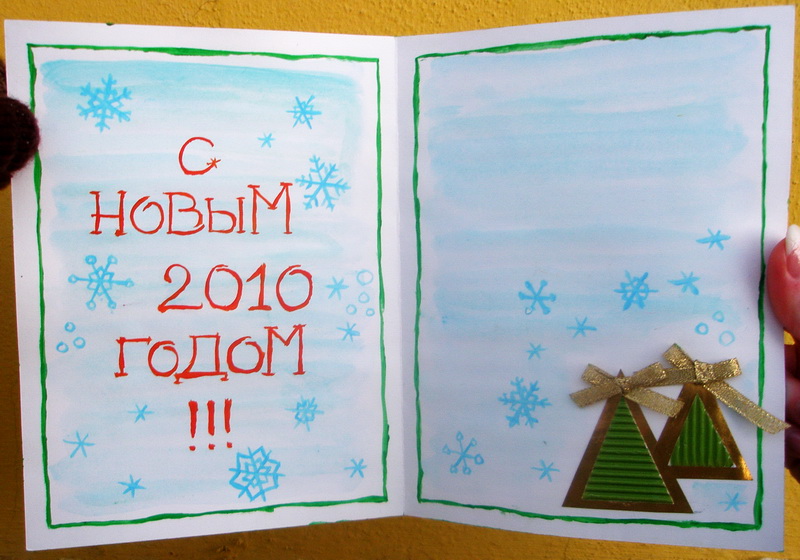 С
НОВЫМ
2010
ГОДОМ
!!!